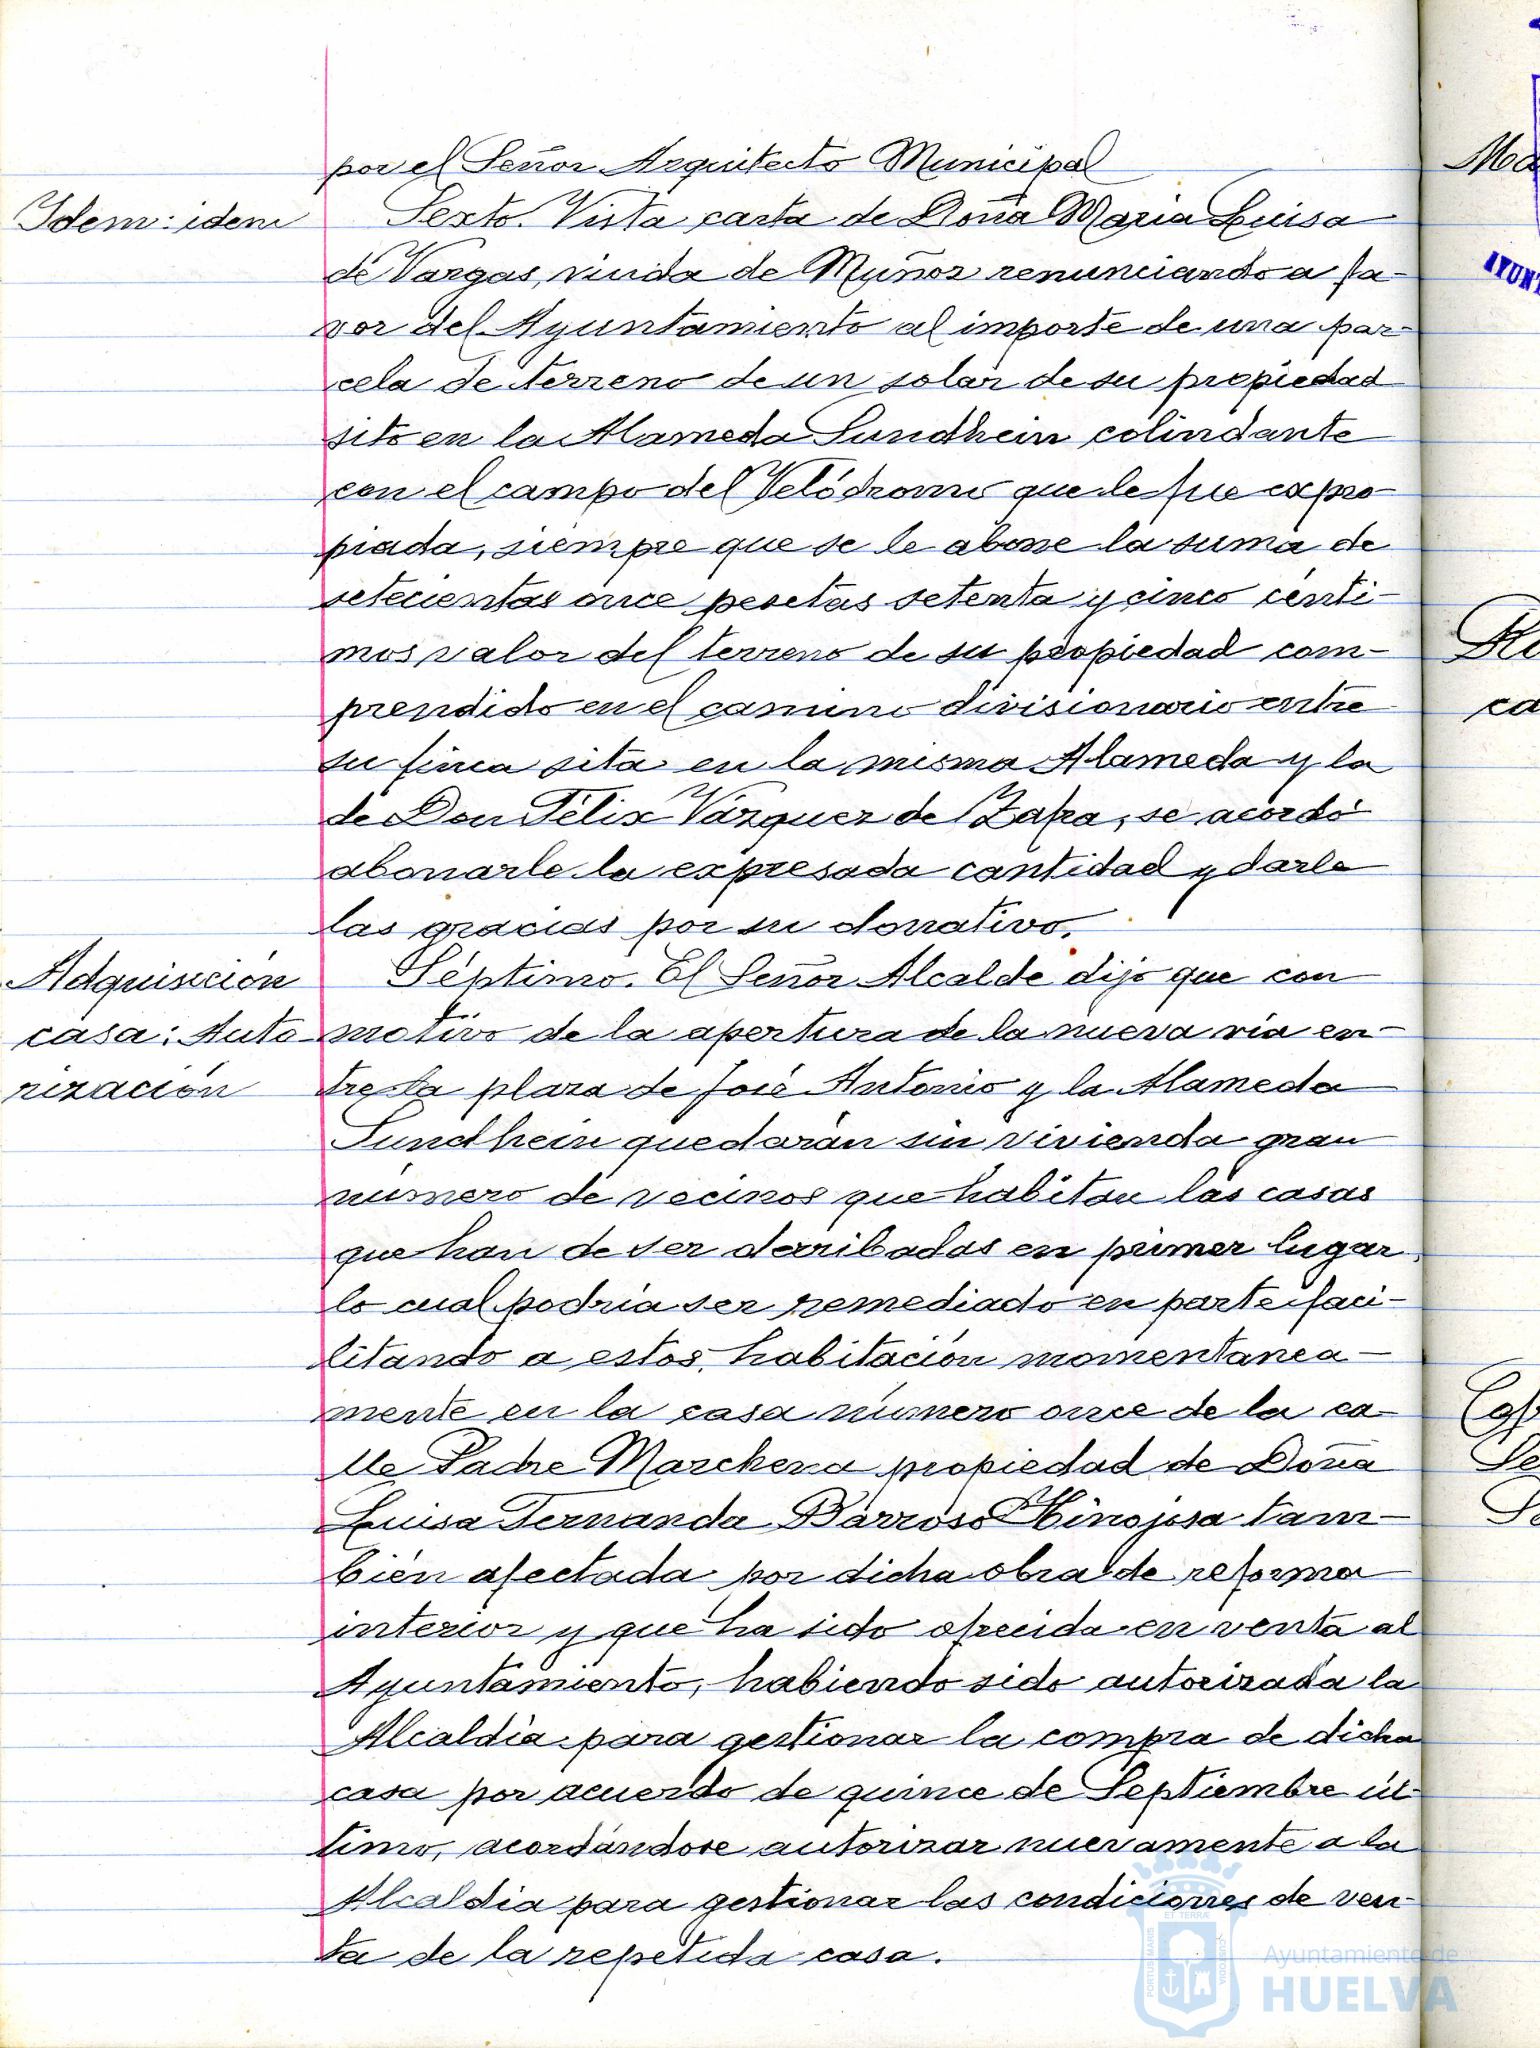 por el Señor Arquitecto Municipal
Idem: idem
Sexto. Vista carta de Doña Maria Luisa
de Vargas, viuda de Muñoz renunciando a fa-
vor del Ayuntamiento al importe de una par-
cela de terreno de un solar de su propiedad
sito en la Alameda Sundhein colindante
con el campo del Velódromo que le fue expro-
piada, siempre que se le abone la suma de
setecientas once pesetas setenta y cinco cénti-
mos valor del terreno de su propiedad com-
prendido en el camino divisionario entre
su finca sita en la misma Alameda y la
de Don Félix Vázquez de Zafra, se acordó
abonarle la expresada cantidad y darle
las gracias por su donativo.
Adquisición
casa: Auto-
rización
Séptimo. El Señor Alcalde dijo que con
motivo de la apertura de la nueva via en-
tre la plaza de José Antonio y la Alameda
Sundhein quedarán sin vivienda gran
número de vecinos que habitan las casas
que han de ser derribadas en primer lugar
lo cual podría ser remediado en parte faci-
litando a estos, habitación momentanea-
mente en la casa número once de la ca-
lle Padre Marchena propiedad de Doña
Luisa Fernanda Barroso Hinojosa tam-
bién afectada por dicha obra de reforma
interior y que ha sido ofrecida en venta al
Ayuntamiento, habiendo sido autorizada la
Alcaldía para gestionar la compra de dicha
casa por acuerdo de quince de Septiembre úl-
timo, acordándose autorizar nuevamente a la
Alcaldia para gestionar las condiciones de ven-
ta de la repetida casa.
Ayuntamiento de
HUELVA